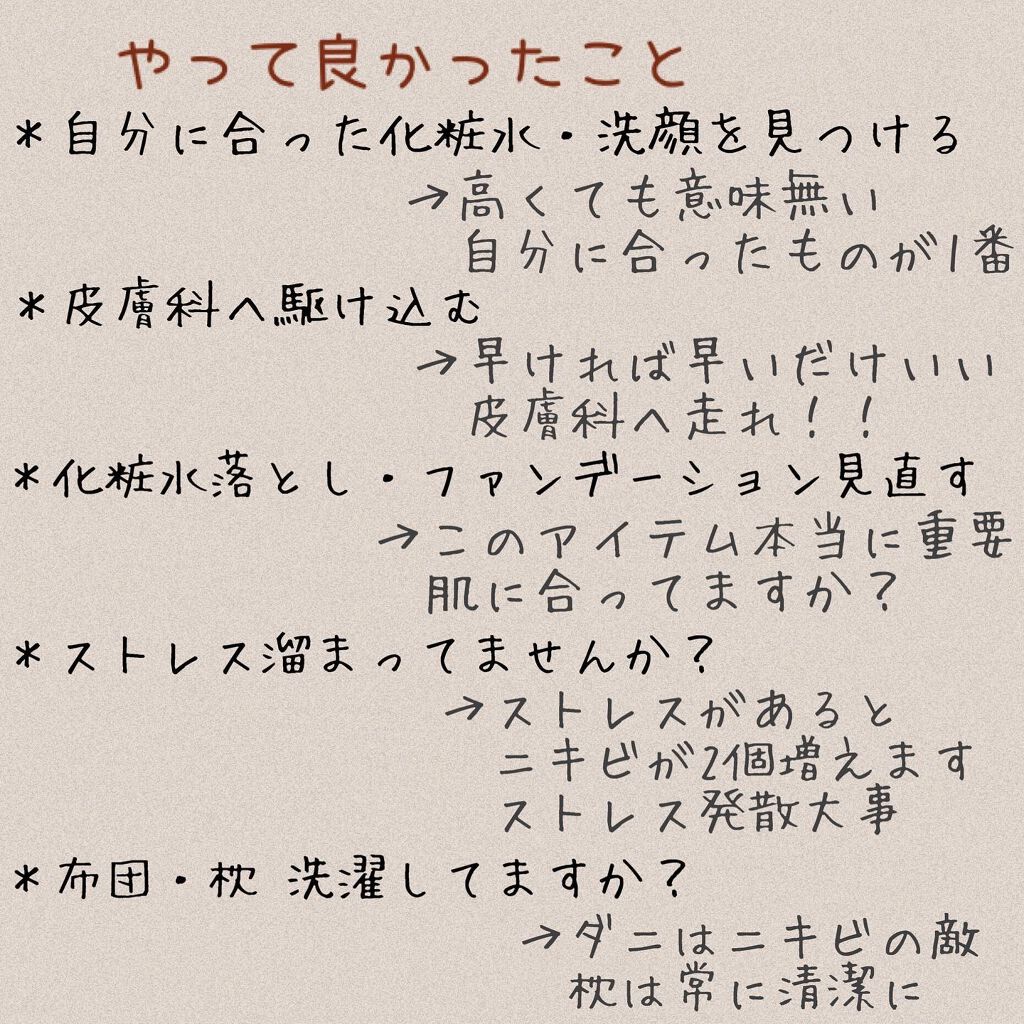 やって良かったこと
*自分に合った化粧水・洗顔を見つける
→高くても意味無い
自分に合ったものが1番
*皮膚科へ駆け込む
→早ければ早いだけいい
皮膚科へ走れ！！
*化粧水落とし・ファンデーション見直す
→このアイテム本当に重要
肌に合ってますか？
*ストレス溜まってませんか？
→ストレスがあると
ニキビが2個増えます
ストレス発散大事
*布団・枕 洗濯してますか？
→ダニはニキビの敵
枕は常に清潔に